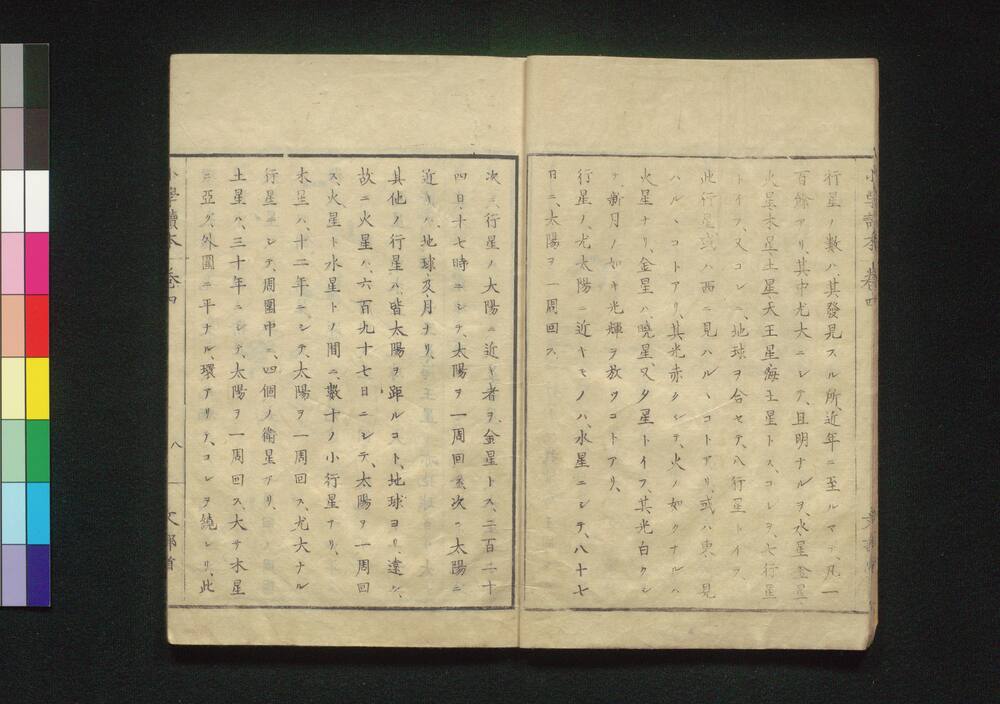 小學讀本 卷四
行星ノ數ハ、其發見スル所、近年ニ至ルマデ、凡一
百餘アリ、其中尤大ニシテ、且明ナルヲ、水星金星
火星木星土星天王星海王星トス、コレヲ、七行星
トイフ、又コレニ、地球ヲ合セテ、八行星トイフ、
此行星或ハ西ニ見ハルヽコトアリ、或ハ東ニ見
ハルヽコトアリ、其光赤クシテ、火ノ如クナルハ
火星ナリ、金星ハ、曉星又夕星トイフ、其光白クシ
テ、新月ノ如キ光輝ヲ放ツコトアリ、
行星ノ、尤太陽ニ近キモノハ、水星ニシテ、八十七
日ニ、太陽ヲ一周回ス、
次ニ行星ノ太陽ニ近キ者ヲ、金星トス、二百二十
四日、十七時ニシテ、太陽ヲ一周回ス、次ニ太陽ニ
近キハ、地球及月ナリ、
其他ノ行星ハ、皆太陽ヲ距ルコト、地球ヨリ、遠シ、
故ニ火星ハ、六百九十七日ニシテ、太陽ヲ一周回
ス、火星ト水星トノ間ニ、數十ノ小行星アリ、
木星ハ、十二年ニシテ、太陽ヲ一周回ス、尤大ナル
行星ニシテ、周圍中ニ、四個ノ衛星アリ、
土星ハ、三十年ニシテ、太陽ヲ一周回ス、大サ木星
ニ亞グ、外圍ニ平ナル、環アリテ、コレヲ繞レリ、此
小學讀本 卷四 八 文部省